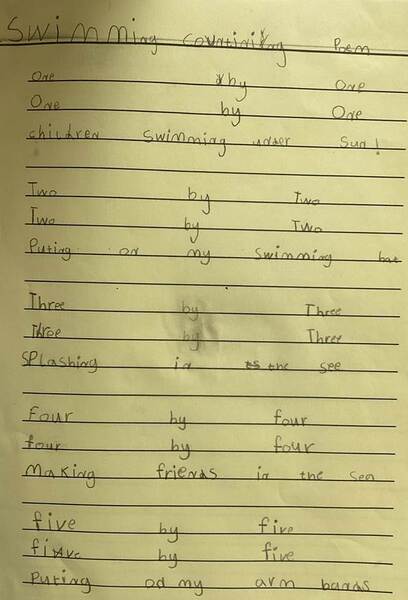 Swimming countining Poem
one by one
One by One
children swimming under sun!
Two by Two
Two by Two
Puting on my swimming hat
Three by Three
Three by Three
SPlashing in the see
Four by four
four by four
Making friends in the sea
five by five
five by five
Puting on my arm bands